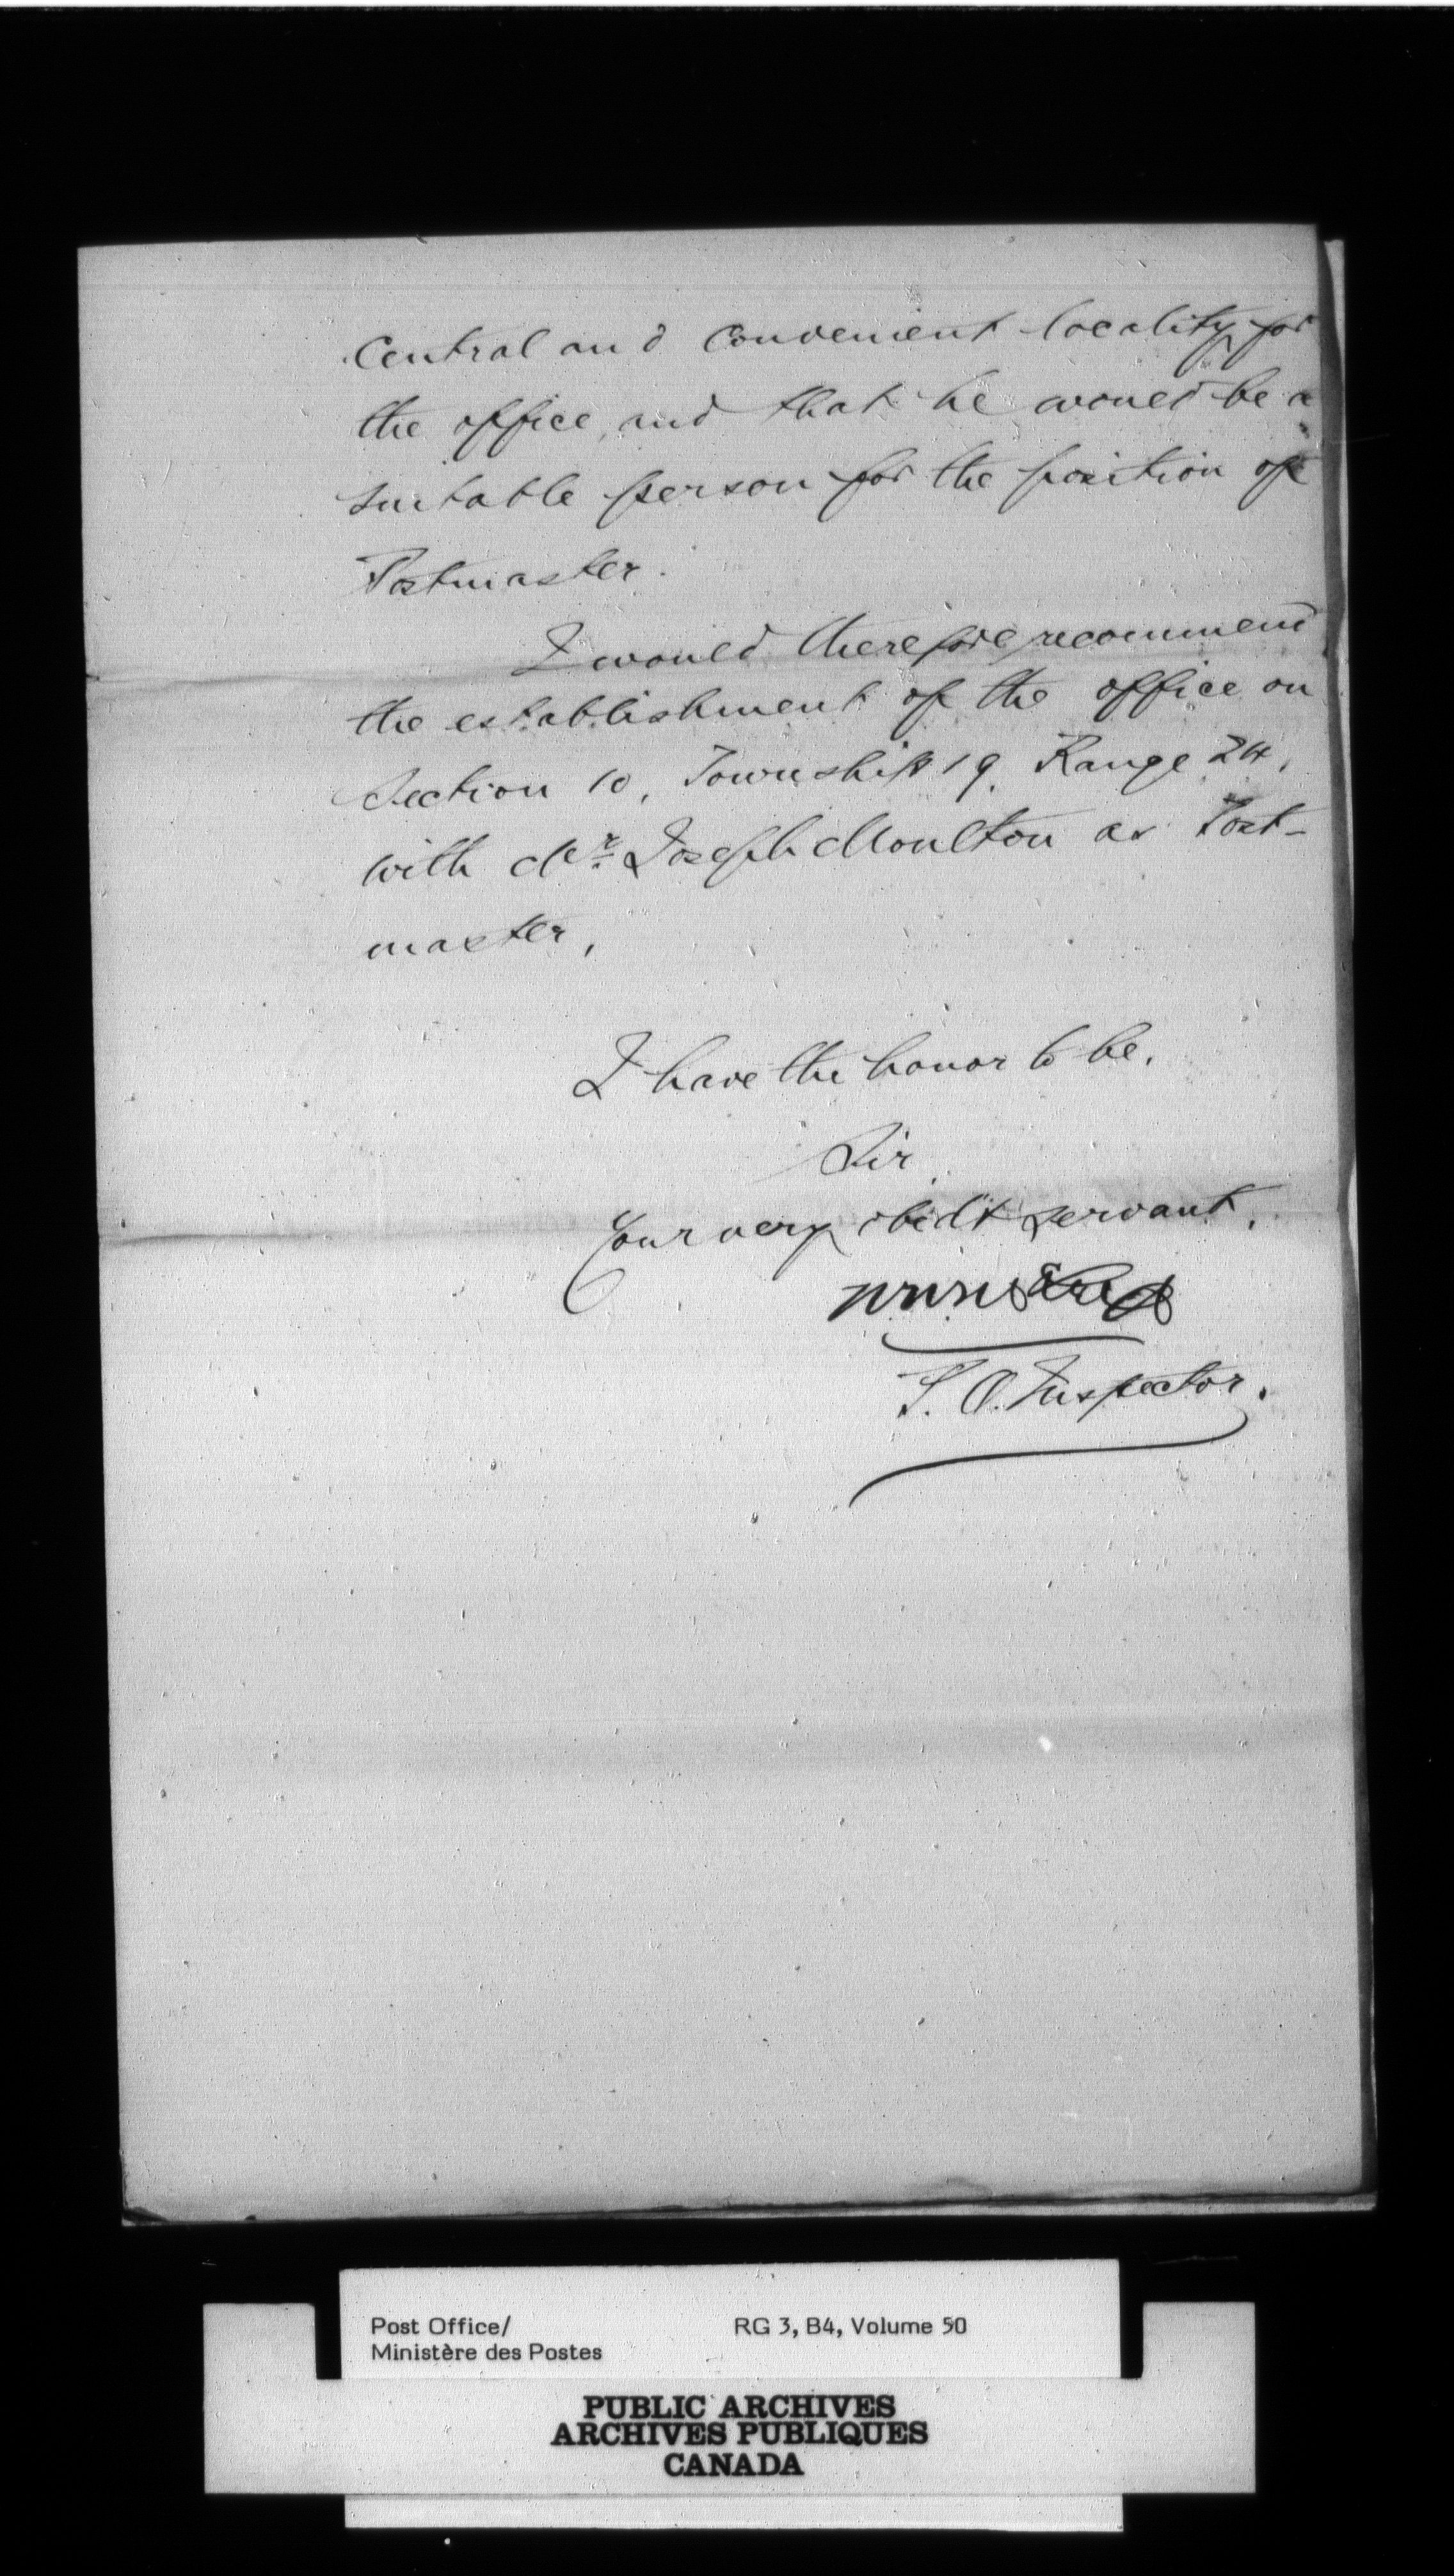 Central and Convenient locality for
the office, and that he would be a
suitable person for the position of
Postmaster.
I would therefore recommend
the establishment of the office on
Section 10, Township 19, Range 24,
with Mr. Joseph Moulton as Post-
master,
I have the honor to be,
Sir,
Your very obedt servant,
P. O. Inspector.
Post Office/
Ministère des Postes
RG 3, B4, Volume 50
PUBLIC ARCHIVES
ARCHIVES PUBLIQUES
CANADA